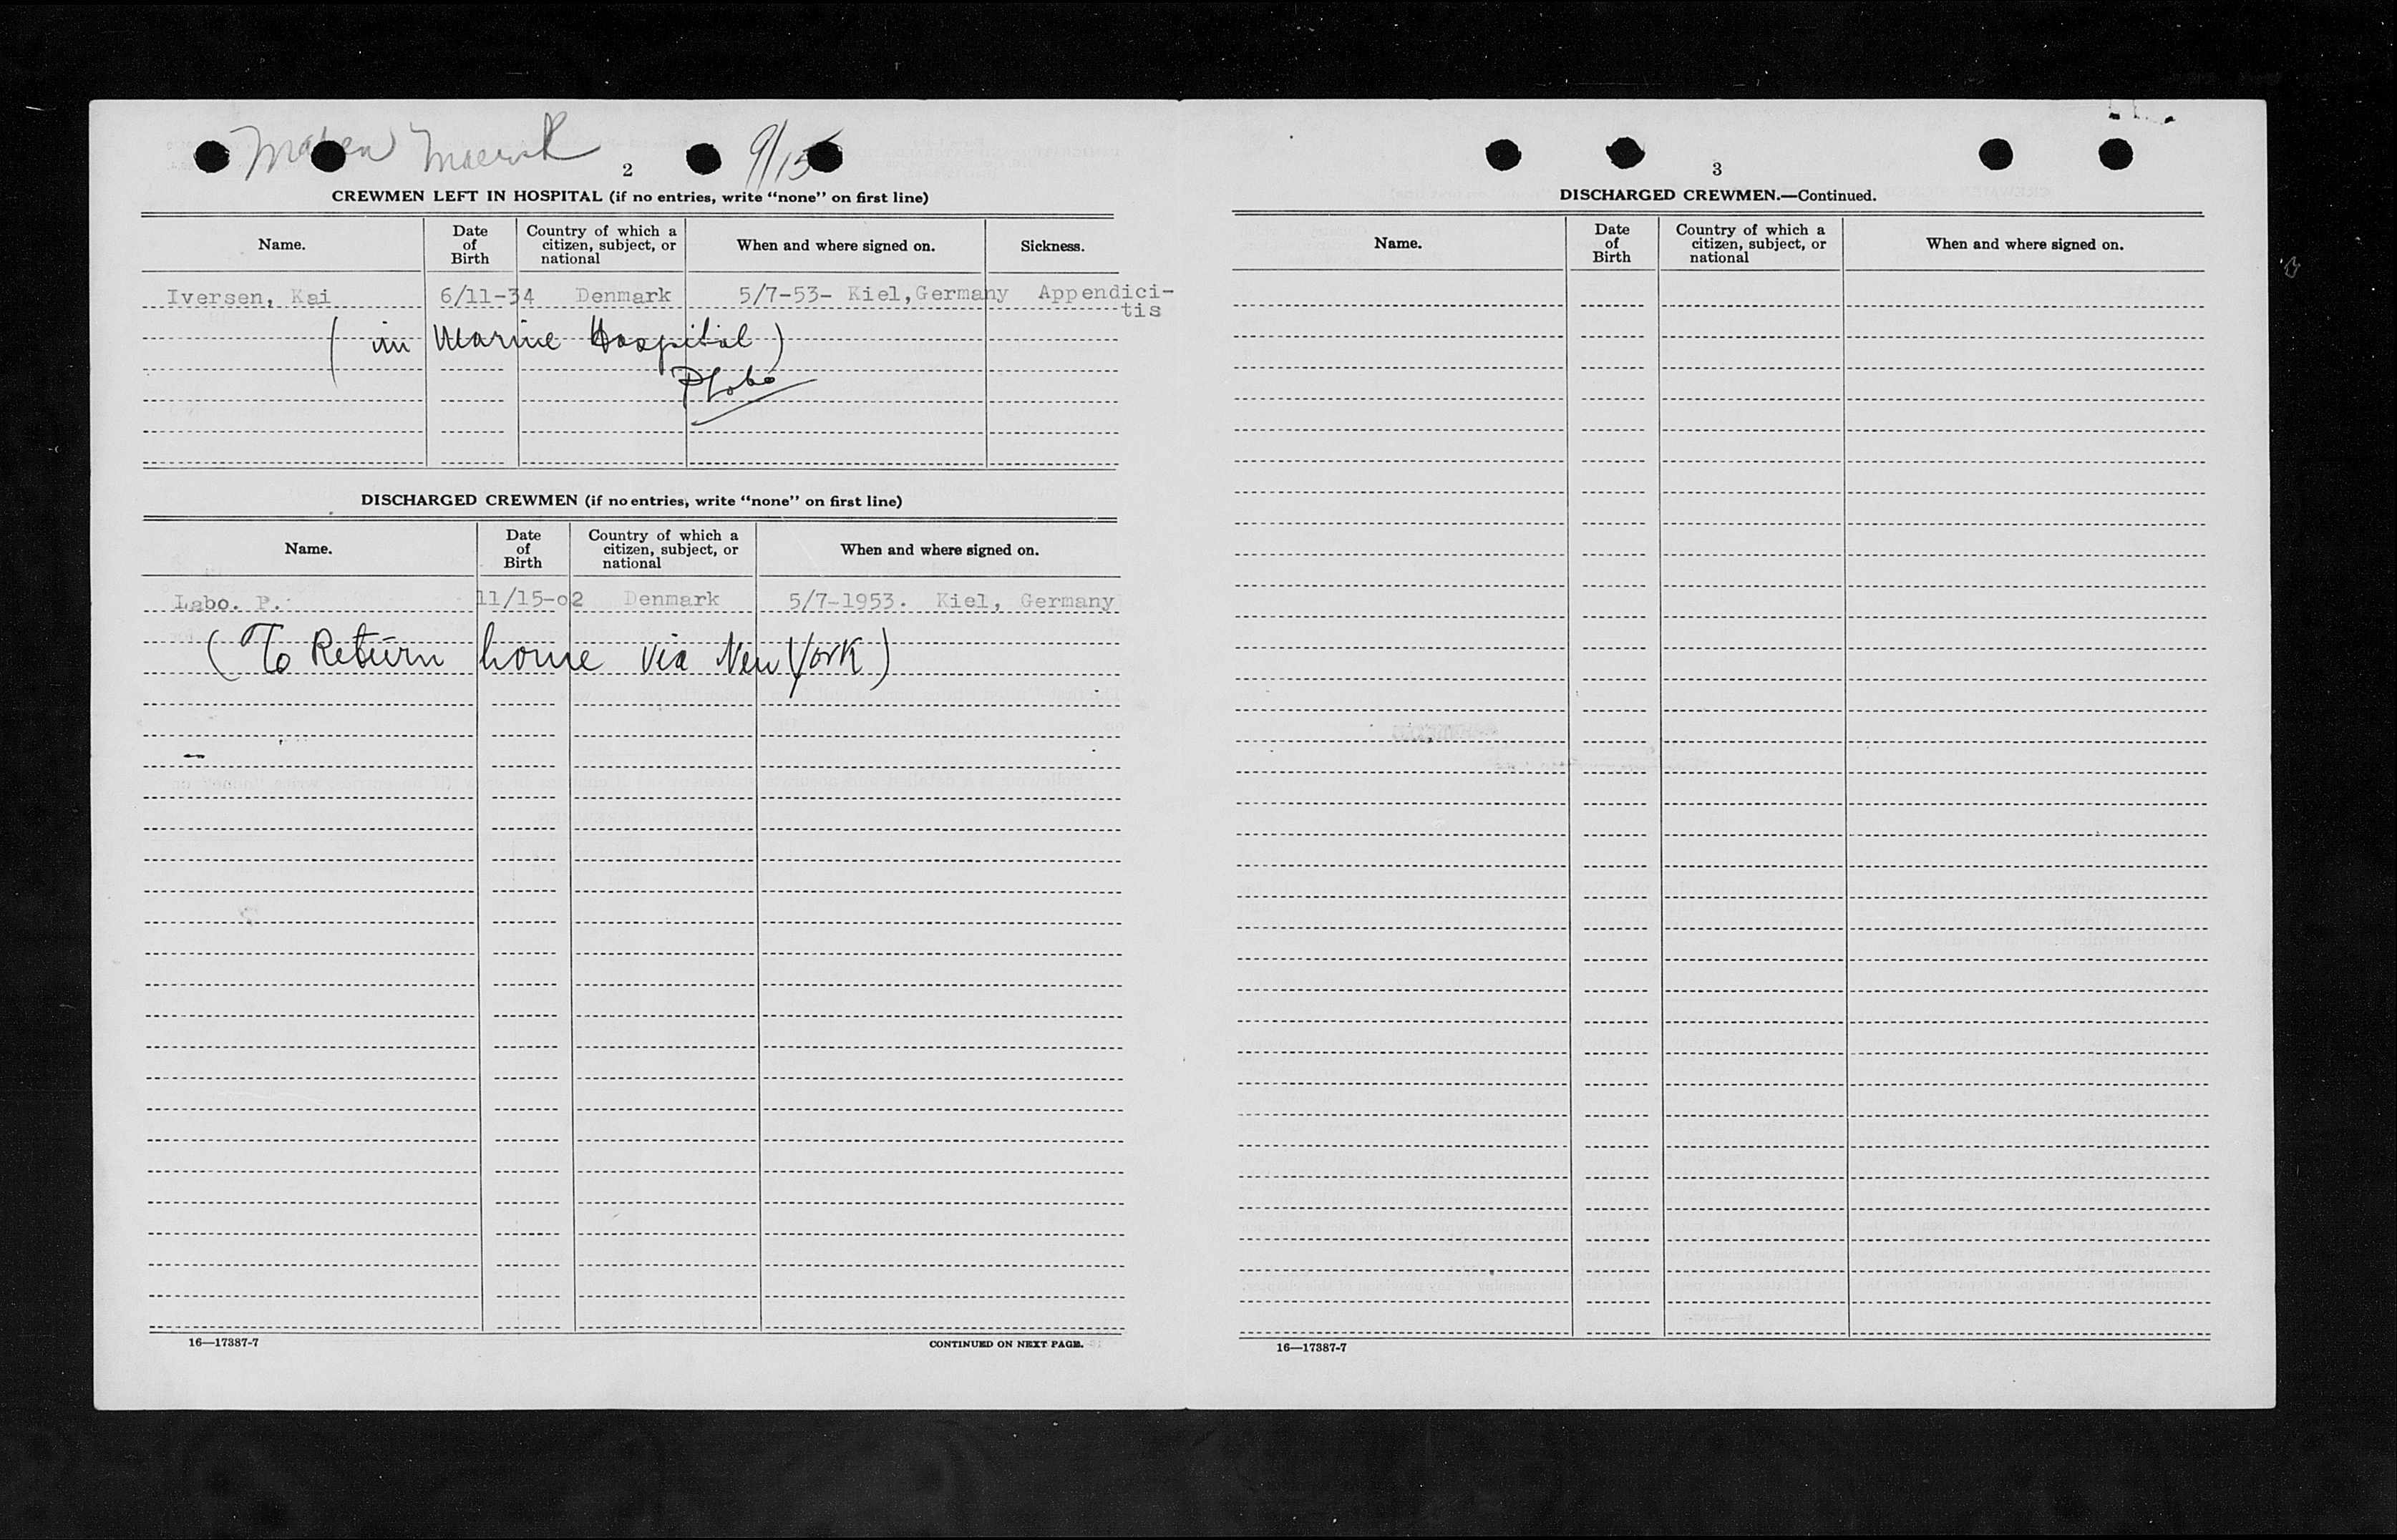 Maersk 9/15
2
CREWMEN LEFT IN HOSPITAL (if no entries, write “none” on first line)
Name. Date of Birth Country of which a citizen, subject, or national When and where signed on. Sickness.
Iversen, Kai 6/11-34 Denmark 5/7-53- Kiel,Germany Appendici-
tis
( in Marine Hospital )
DISCHARGED CREWMEN (if no entries, write “none” on first line)
Name. Date of Birth Country of which a citizen, subject, or national When and where signed on.
Labo. P. 11/15-02 Denmark 5/7-1953. Kiel, Germany
( To Return home via New York )
16—17387-7 CONTINUED ON NEXT PAGE.
3
DISCHARGED CREWMEN.—Continued.
Name. Date of Birth Country of which a citizen, subject, or national When and where signed on.
16—17387-7